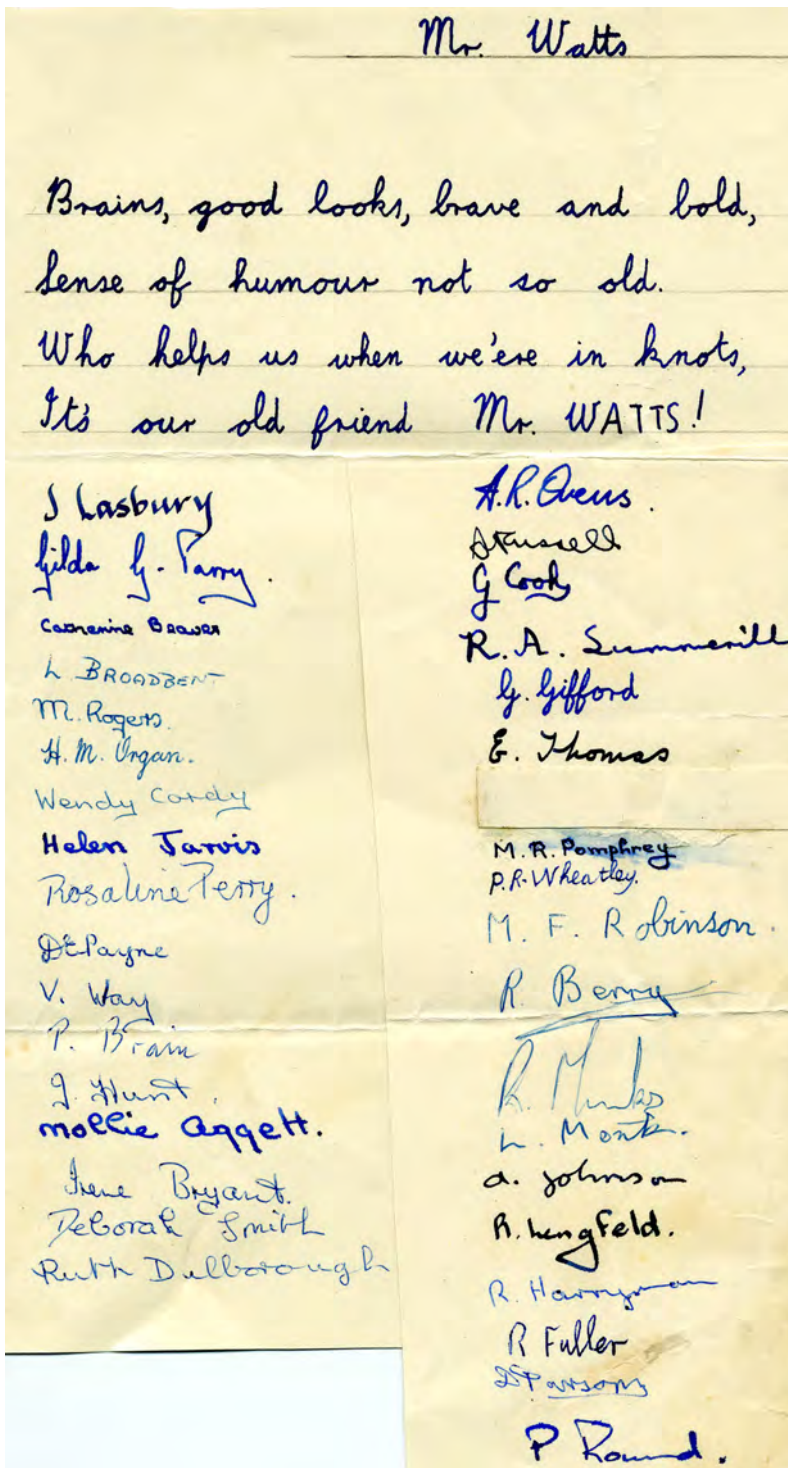 Mr. Watts
Brains, good looks, brave and bold,
Sense of humour not so old.
Who helps us when we'ere in knots,
It's our old friend Mr. WATTS!
J Lasbury
Gilda G. Parry.
Catherine Beaver
L. BROADBENT
M. Rogers.
H. M. Organ.
Wendy Cordy
Helen Jarvis
Rosaline Perry.
D E Payne
V. Way
P. Brain
J. Hunt.
Mollie Aggett.
Irene Bryant.
Deborah Smith
Ruth Dulborough
A.R. Ovens.
A Fussell
G Cook
R. A. Summerill
G. Gifford
E. Thomas
M. R. Pomphrey
P.R. Wheatley.
M. F. Robinson.
R. Berry
R. Munks
L. Monk.
a. Johnson
R. Lengfeld.
R. Harryman
R Fuller
D Parsons
P Round.